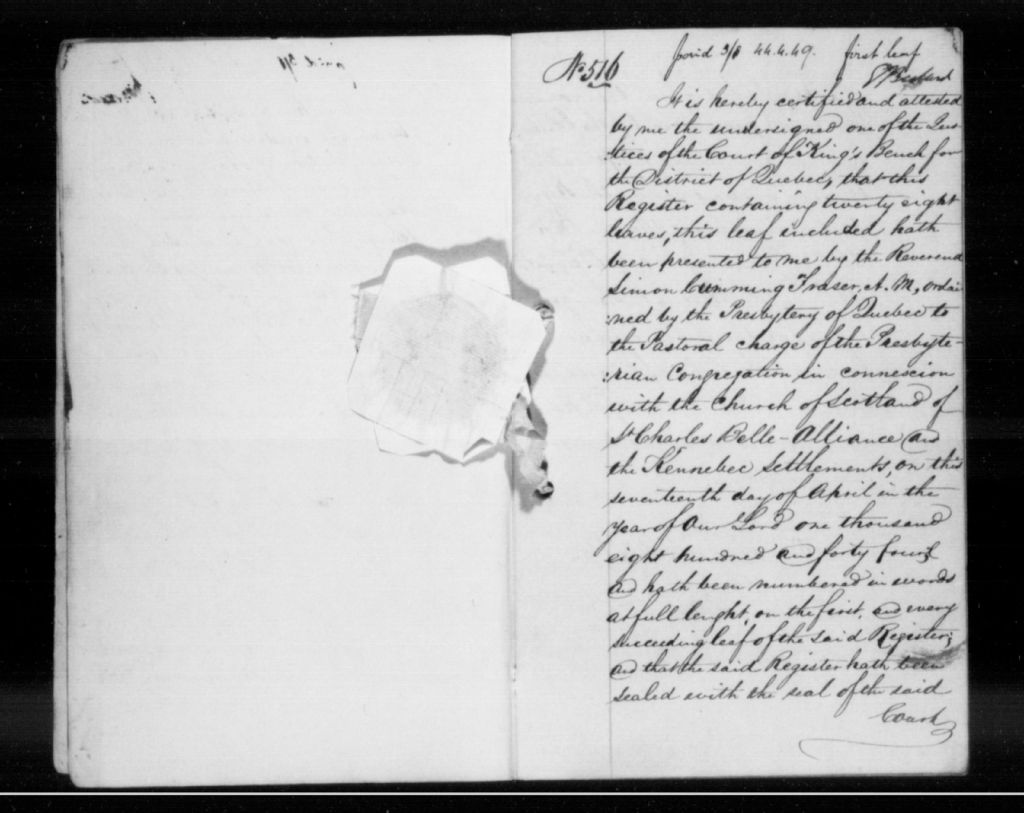 № 516
paid 3/8 44.4.49. first leaf
It is hereby certified and attested
by me the undersigned one of the Jus-
tices of the Court of King's Bench for
the District of Quebec, that this
Register containing twenty eight
leaves, this leaf included hath
been presented to me by the Reverend
Simon Cumming Fraser, A. M., ordai
:ned by the Presbytery of Quebec to
the Pastoral charge of the Presbyte-
:rian Congregation in connexion
with the Church of Scotland of
St Charles Belle-Alliance and
the Kennebec Settlements, on this
seventeenth day of April in the
year of Our Lord one thousand
eight hundred and forty four;
and hath been numbered in words
at full lenght, on the first, and every
succeeding leaf of the said Register;
and that the said Register hath been
sealed with the seal of the said
Court